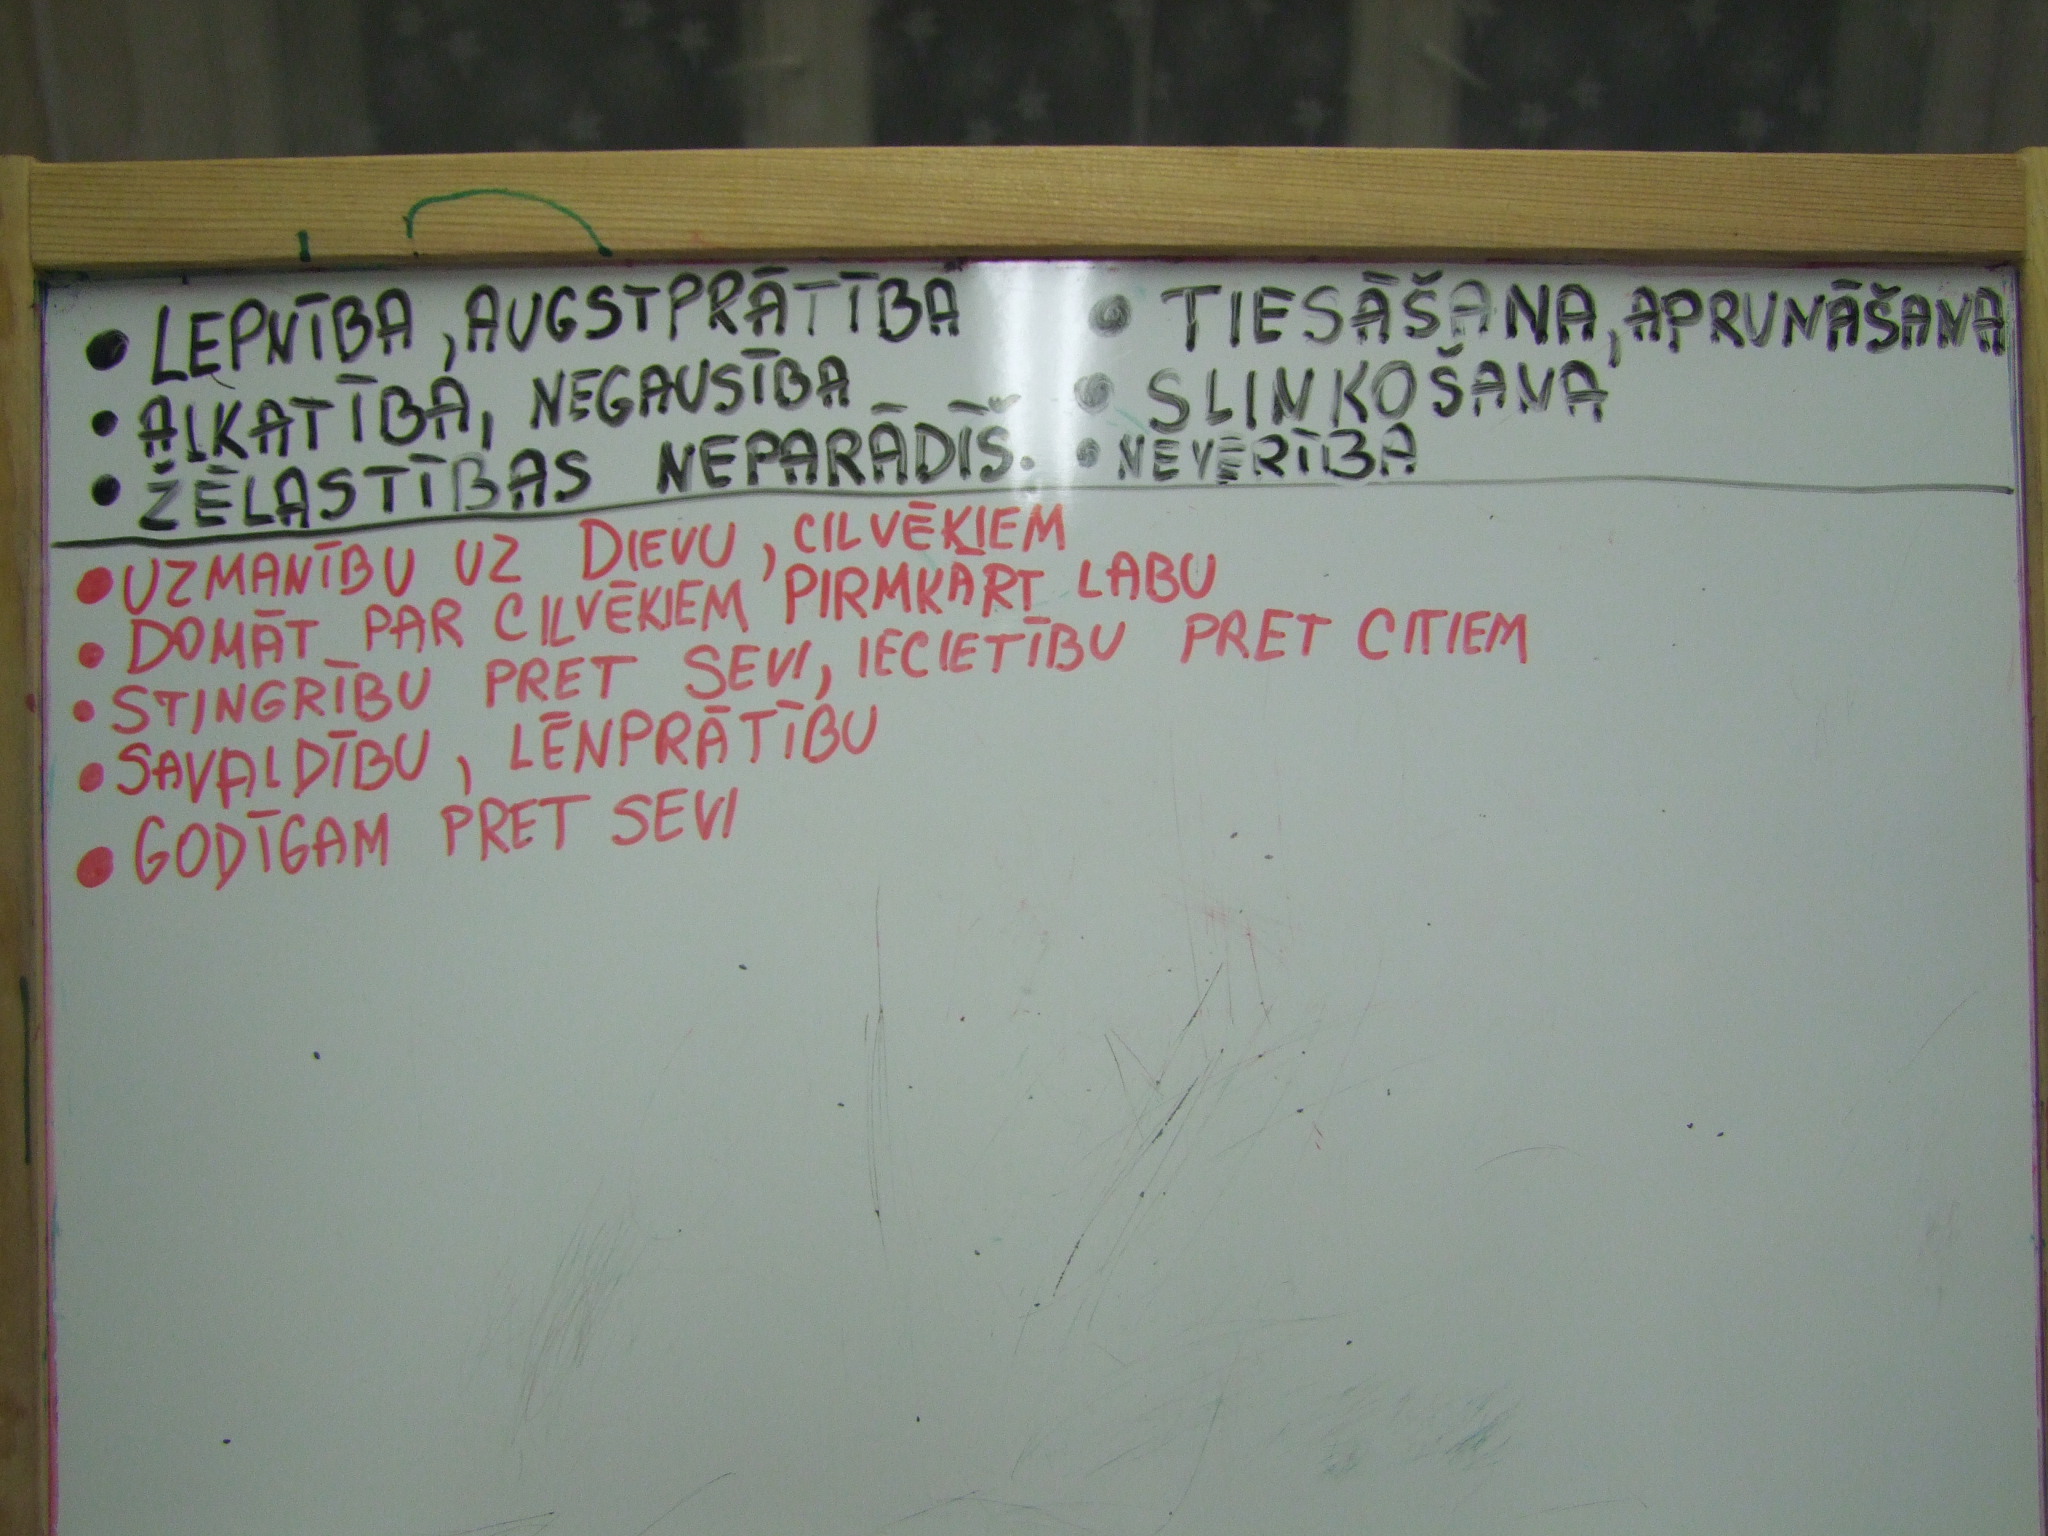 • LEPNĪBA, AUGSTPRĀTĪBA
• ALKATĪBA, NEGAUSĪBA
• ŽĒLASTĪBAS NEPARĀDĪŠ.
• TIESĀŠANA, APRUNĀŠANA
• SLINKOŠANA
• NEVĒRĪBA
• UZMANĪBU UZ DIEVU, CILVĒKIEM
• DOMĀT PAR CILVĒKIEM PIRMKĀRT LABU
• STINGRĪBU PRET SEVI, IECIETĪBU PRET CITIEM
• SAVALDĪBU, LĒNPRĀTĪBU
• GODĪGAM PRET SEVI